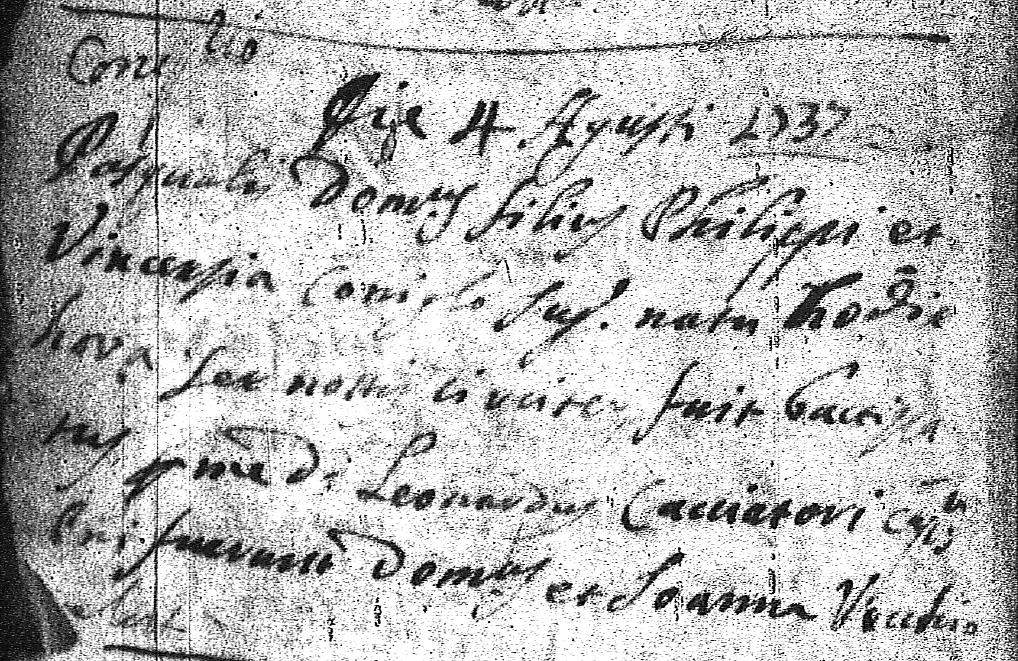 Coniglio
Die 4. Agusti 1737
Pasqualis Domcus filius Philippi et
Vincensia Coniglo jug. natu hodie
hora sex noctis circiter fuit bactiza
tus p me D. Leonardus Cacciatori Capnu
Pni fuerunt Domcus et Joanna Vecchio